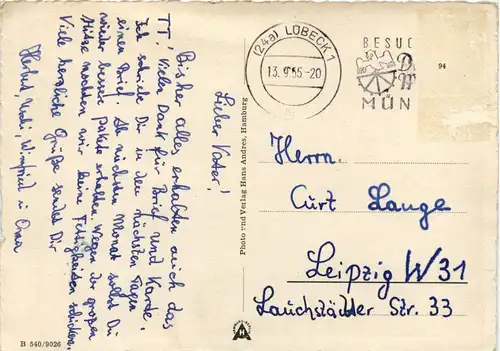 Lieber Vater!
Bisher alles erhalten auch das
TT! Vielen Dank für Brief und Karte.
Ich schreibe Dir in den nächsten Tagen
einen Brief. Ab nächsten Monat sollst Du
wieder bessere Pakete erhalten. Wegen der großen
Hitze mochten wir keine Fettigkeiten schicken.
Viele herzliche Grüße sendet Dir
Herbert, Uschi, Winfried u. Oma
B 540/9026
Photo und Verlag Hans Andres, Hamburg
(24a) LÜBECK 1
13.9.55-20
BESUC
D
W
MÜN
94
Herrn
Curt Lange
Leipzig W 31
Lauchstädter Str. 33